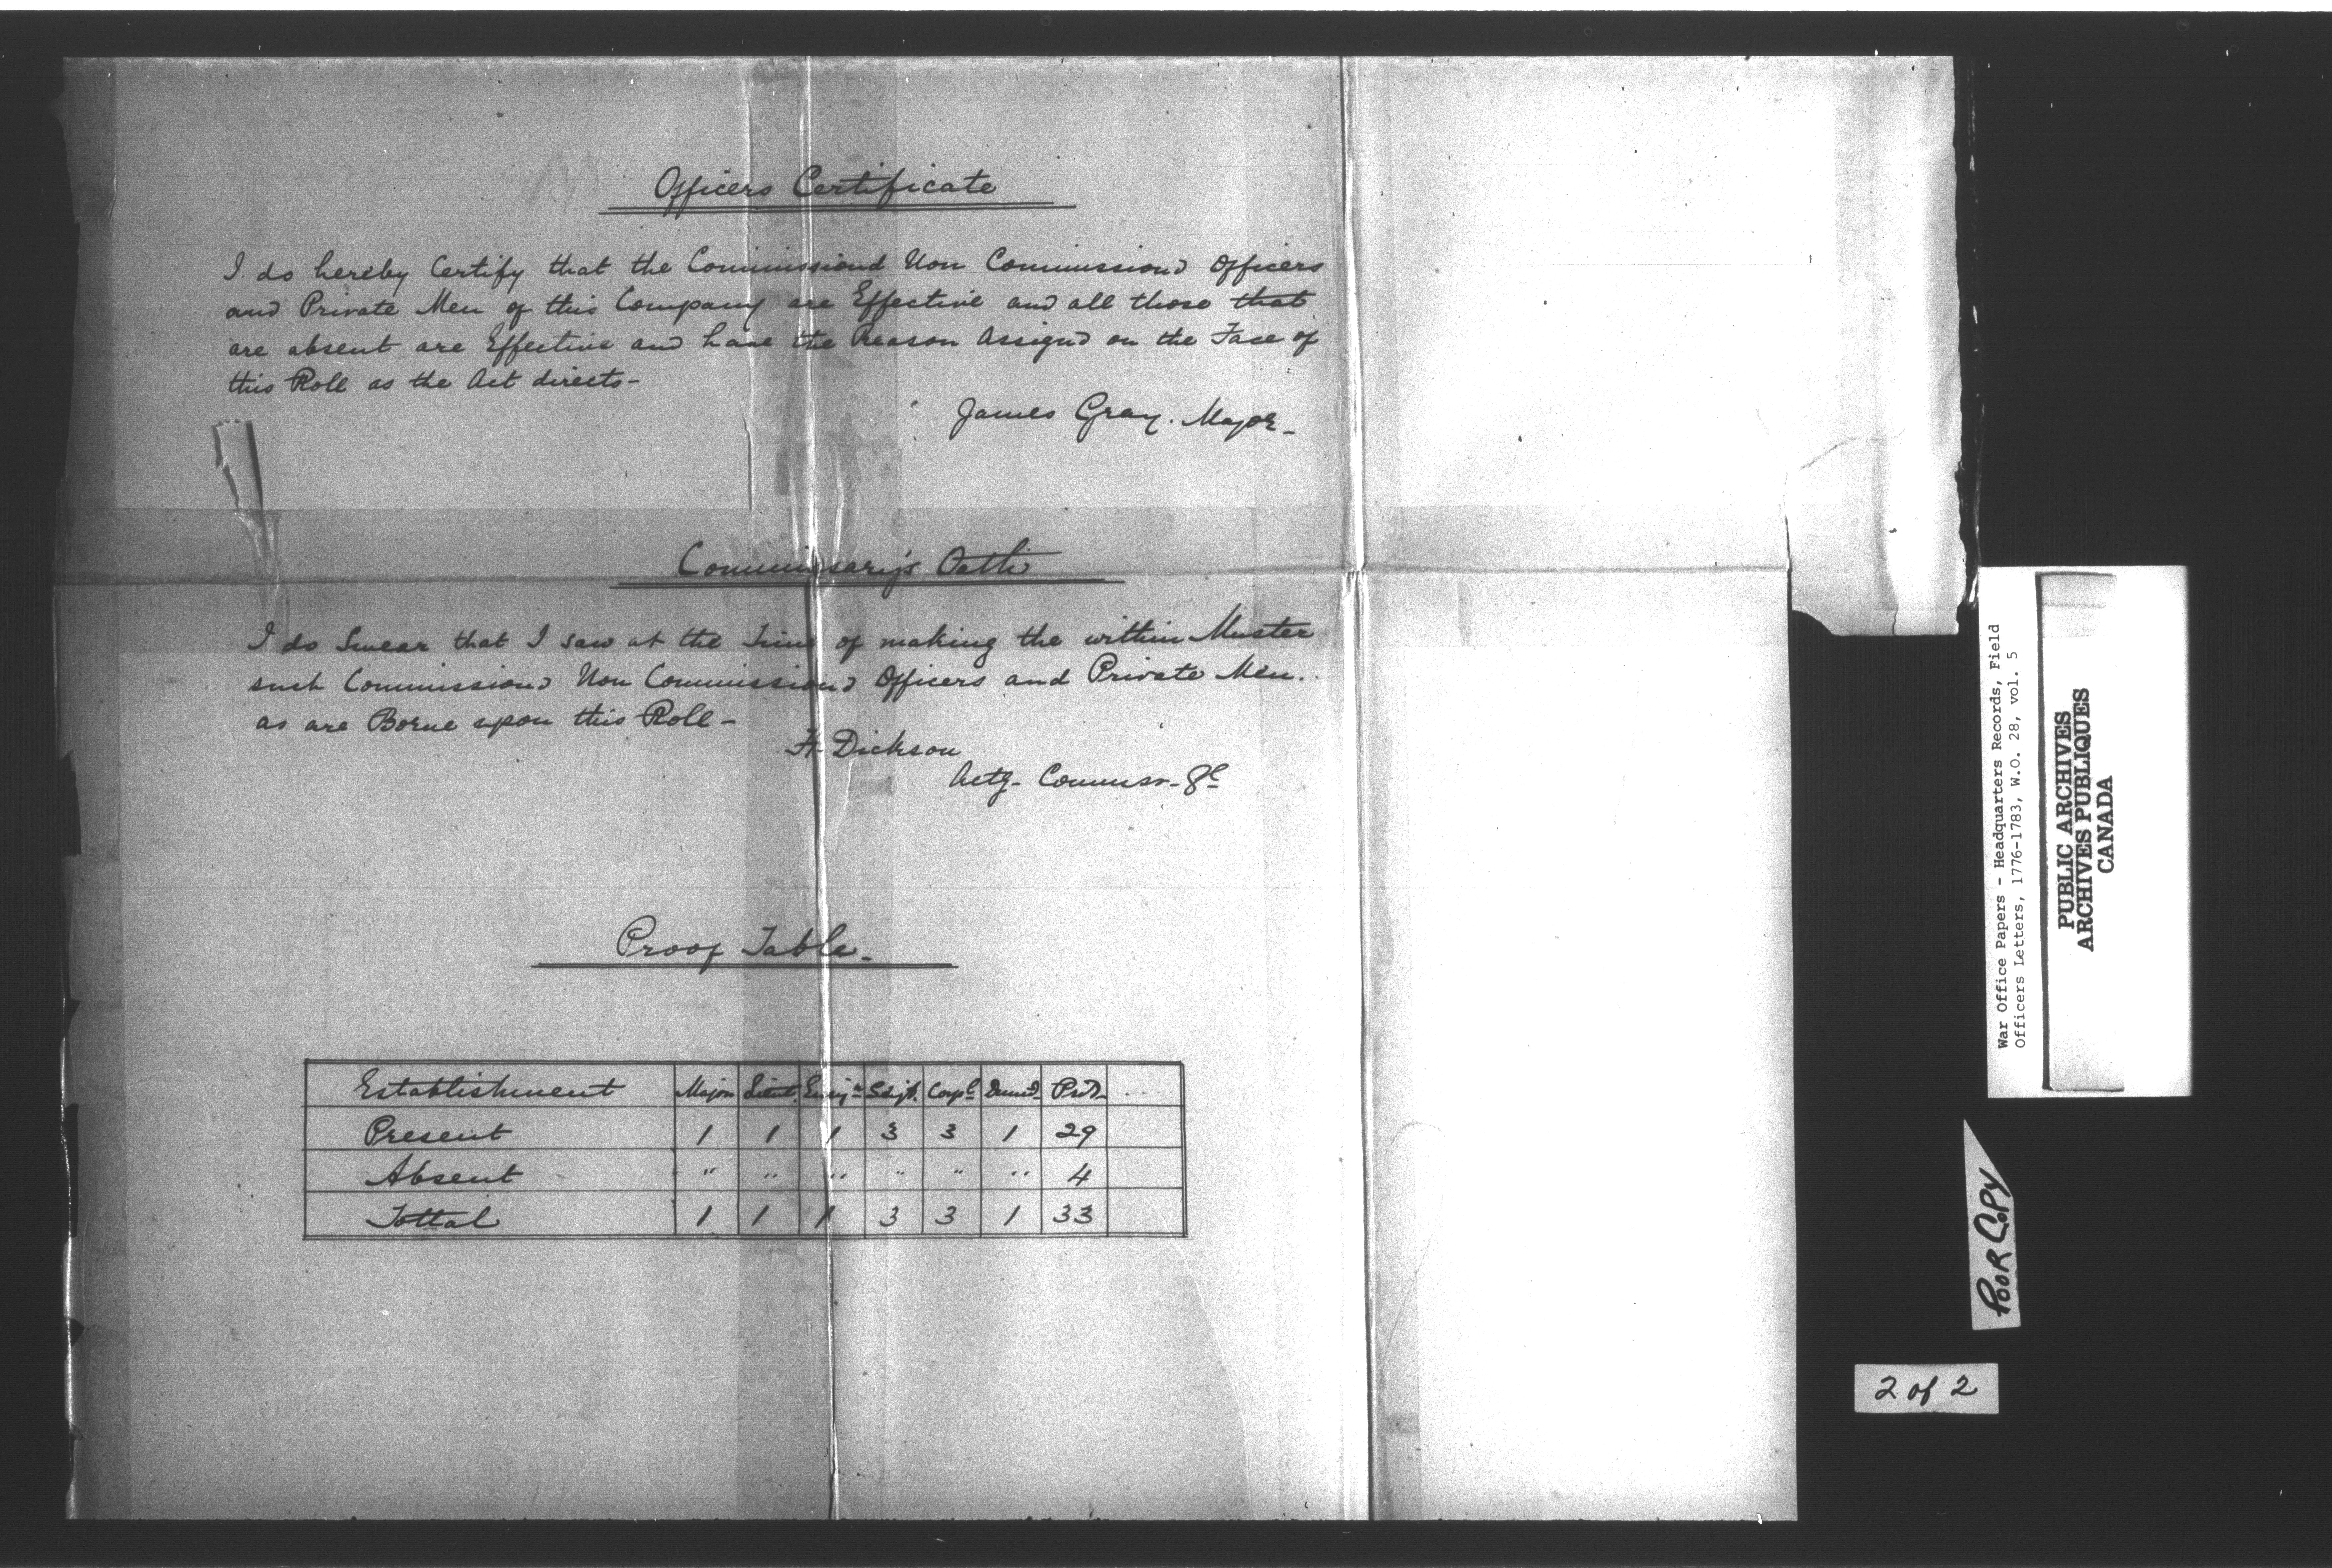 Officers Certificate
I do hereby Certify that the Commissiond Non Commissiond Officers
and Private Men of this Company are Effective and all those that
are absent are Effective and have the Reason Assignd on the Face of
this Roll as the Act directs-
James Gray. Major-
Commissary's Oath
I do Swear that I saw at the Time of making the within Muster
such Commissiond Non Commissiond Officers and Private Men.
as are Borne upon this Roll-
H. Dickson
Actg- Commissr-
Proof Table-
Establishment Major Lieut. Ensign Serjt. Corpl Drumd Prvd
Present 1 1 1 3 3 1 29
Absent " " " " " " 4
Tottal 1 1 1 3 3 1 33
War Office Papers - Headquarters Records, Field
Officers Letters, 1776-1783, W.O. 28, vol. 5
PUBLIC ARCHIVES
ARCHIVES PUBLIQUES
CANADA
POOR COPY
2 of 2